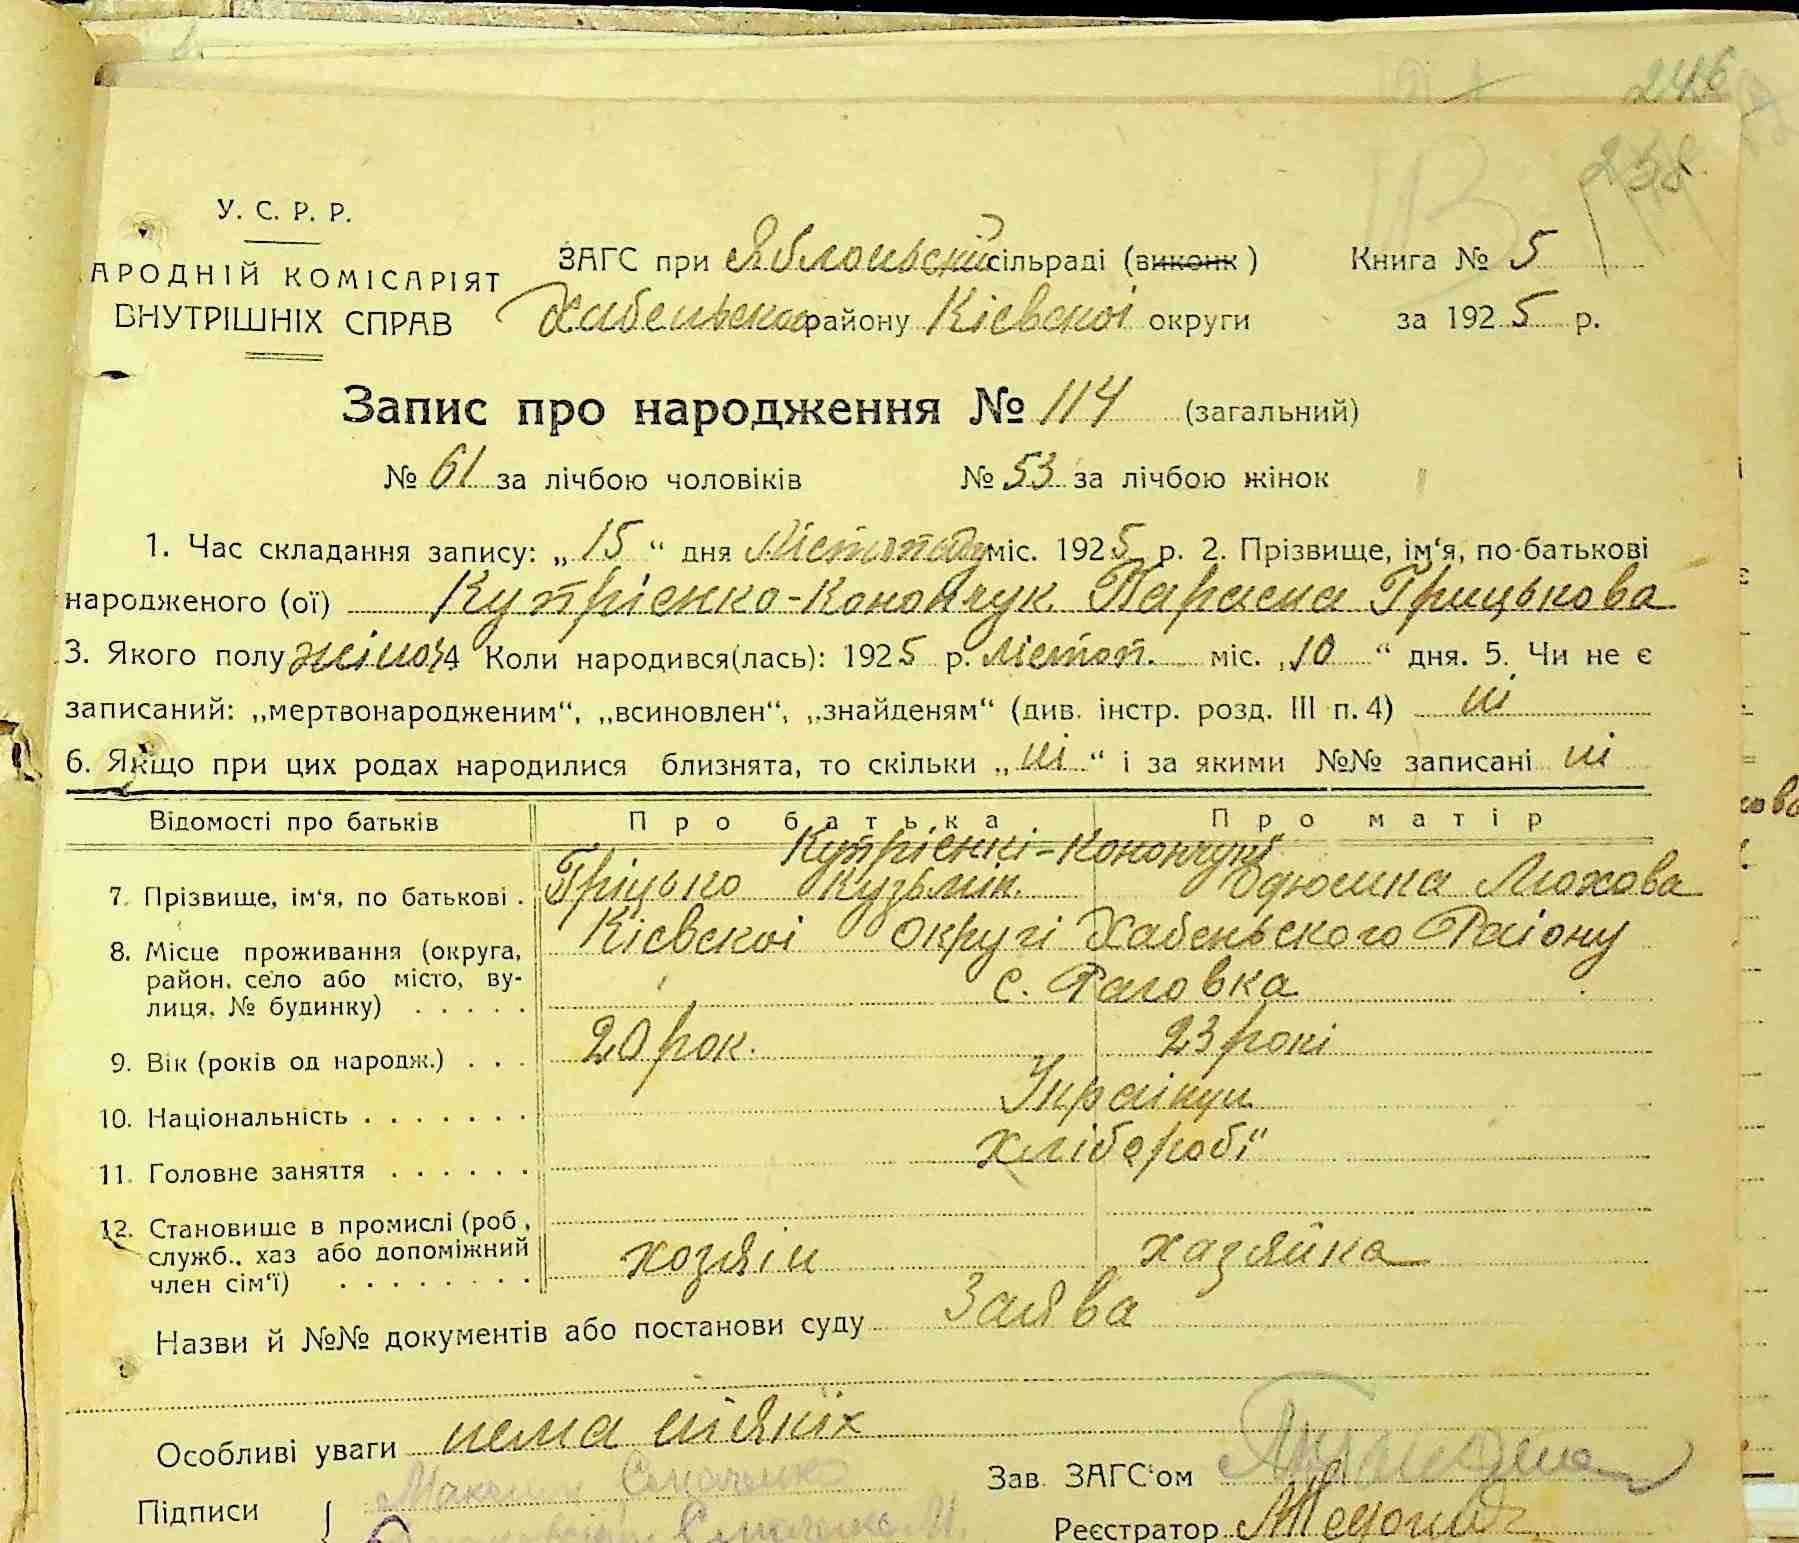 246
238
У. С. Р. Р.
АРОДНІЙ КОМІСАРІЯТ
ВНУТРІШНІХ СПРАВ
ЗАГС при Яблоньскій сільраді (виконк)
Хабеньского району Кієвскої округи
Книга № 5
за 1925 р.
Запис про народження № 114 (загальний)
№ 61 за лічбою чоловіків № 53 за лічбою жінок
1. Час складання запису: „15“ дня Лістопаду міс. 1925 р. 2. Прізвище, ім‘я, по-батькові
народженого (ої) Купрієнко-Конончук Параска Грицькова
3. Якого полу жіноч 4 Коли народився(лась): 1925 р. лістоп. міс. „10“ дня. 5. Чи не є
записаний: „мертвонародженим“, „всиновлен“, „знайденям“ (див. інстр. розд. III п. 4) ні
6. Якщо при цих родах народилися близнята, то скільки „ні“ і за якими №№ записані ні
Відомості про батьків Про батька Про матір
Купрієнкі-Конончукі
7. Прізвище, ім‘я, по батькові . Гріцько Кузьмін. Одюшка Мохова
8. Місце проживання (округа, район, село або місто, вулиця, № будинку) . . . . . Кієвскої Округі Хабеньского Району
с. Раговка
9. Вік (років од народж.) . . . 20 рок. 23 рокі
10. Національність . . . . . . . Украінці
11. Головне заняття . . . . . . Хліборобі
12. Становище в промислі (роб.,
служб., хаз або допоміжний
член сім‘ї) . . . . . . . . хозяін хазяйка
Назви й №№ документів або постанови суду Заява
Особливі уваги нема ніякіх
Підписи
Зав. ЗАГС‘ом
Реєстратор